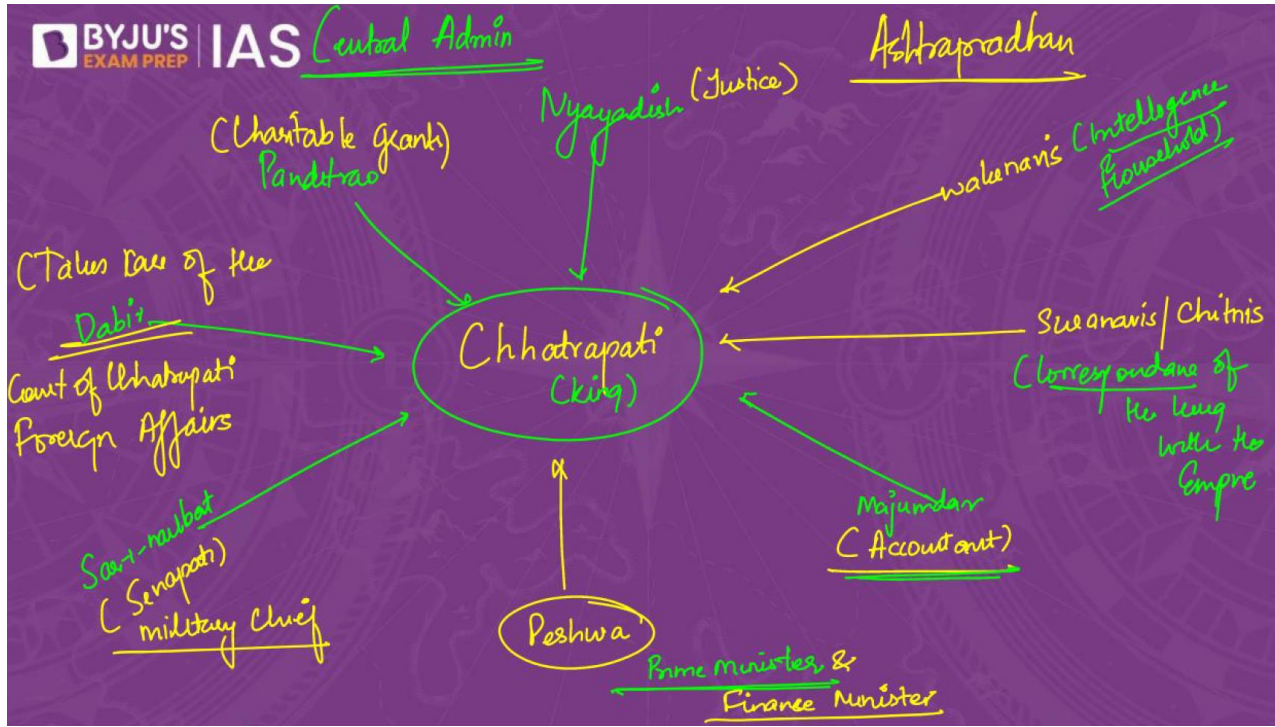 BYJU'S IAS
EXAM PREP
Central Admin
Ashtrapradhan
Nyayadish (Justice)
(Charitable grants)
Panditrao
wakenavis (Intellogence
& Household)
(Takes care of the
Dabir
Court of Chhatrapati
Foreign Affairs
Chhatrapati
(King)
Suranavis/Chitnis
(Correspondane of
the king
with the
Empre
Sar-i-naubat
(Senapati)
military Chief
Majumdar
(Accountant)
Peshwa
Prime Minister &
Finance Minister